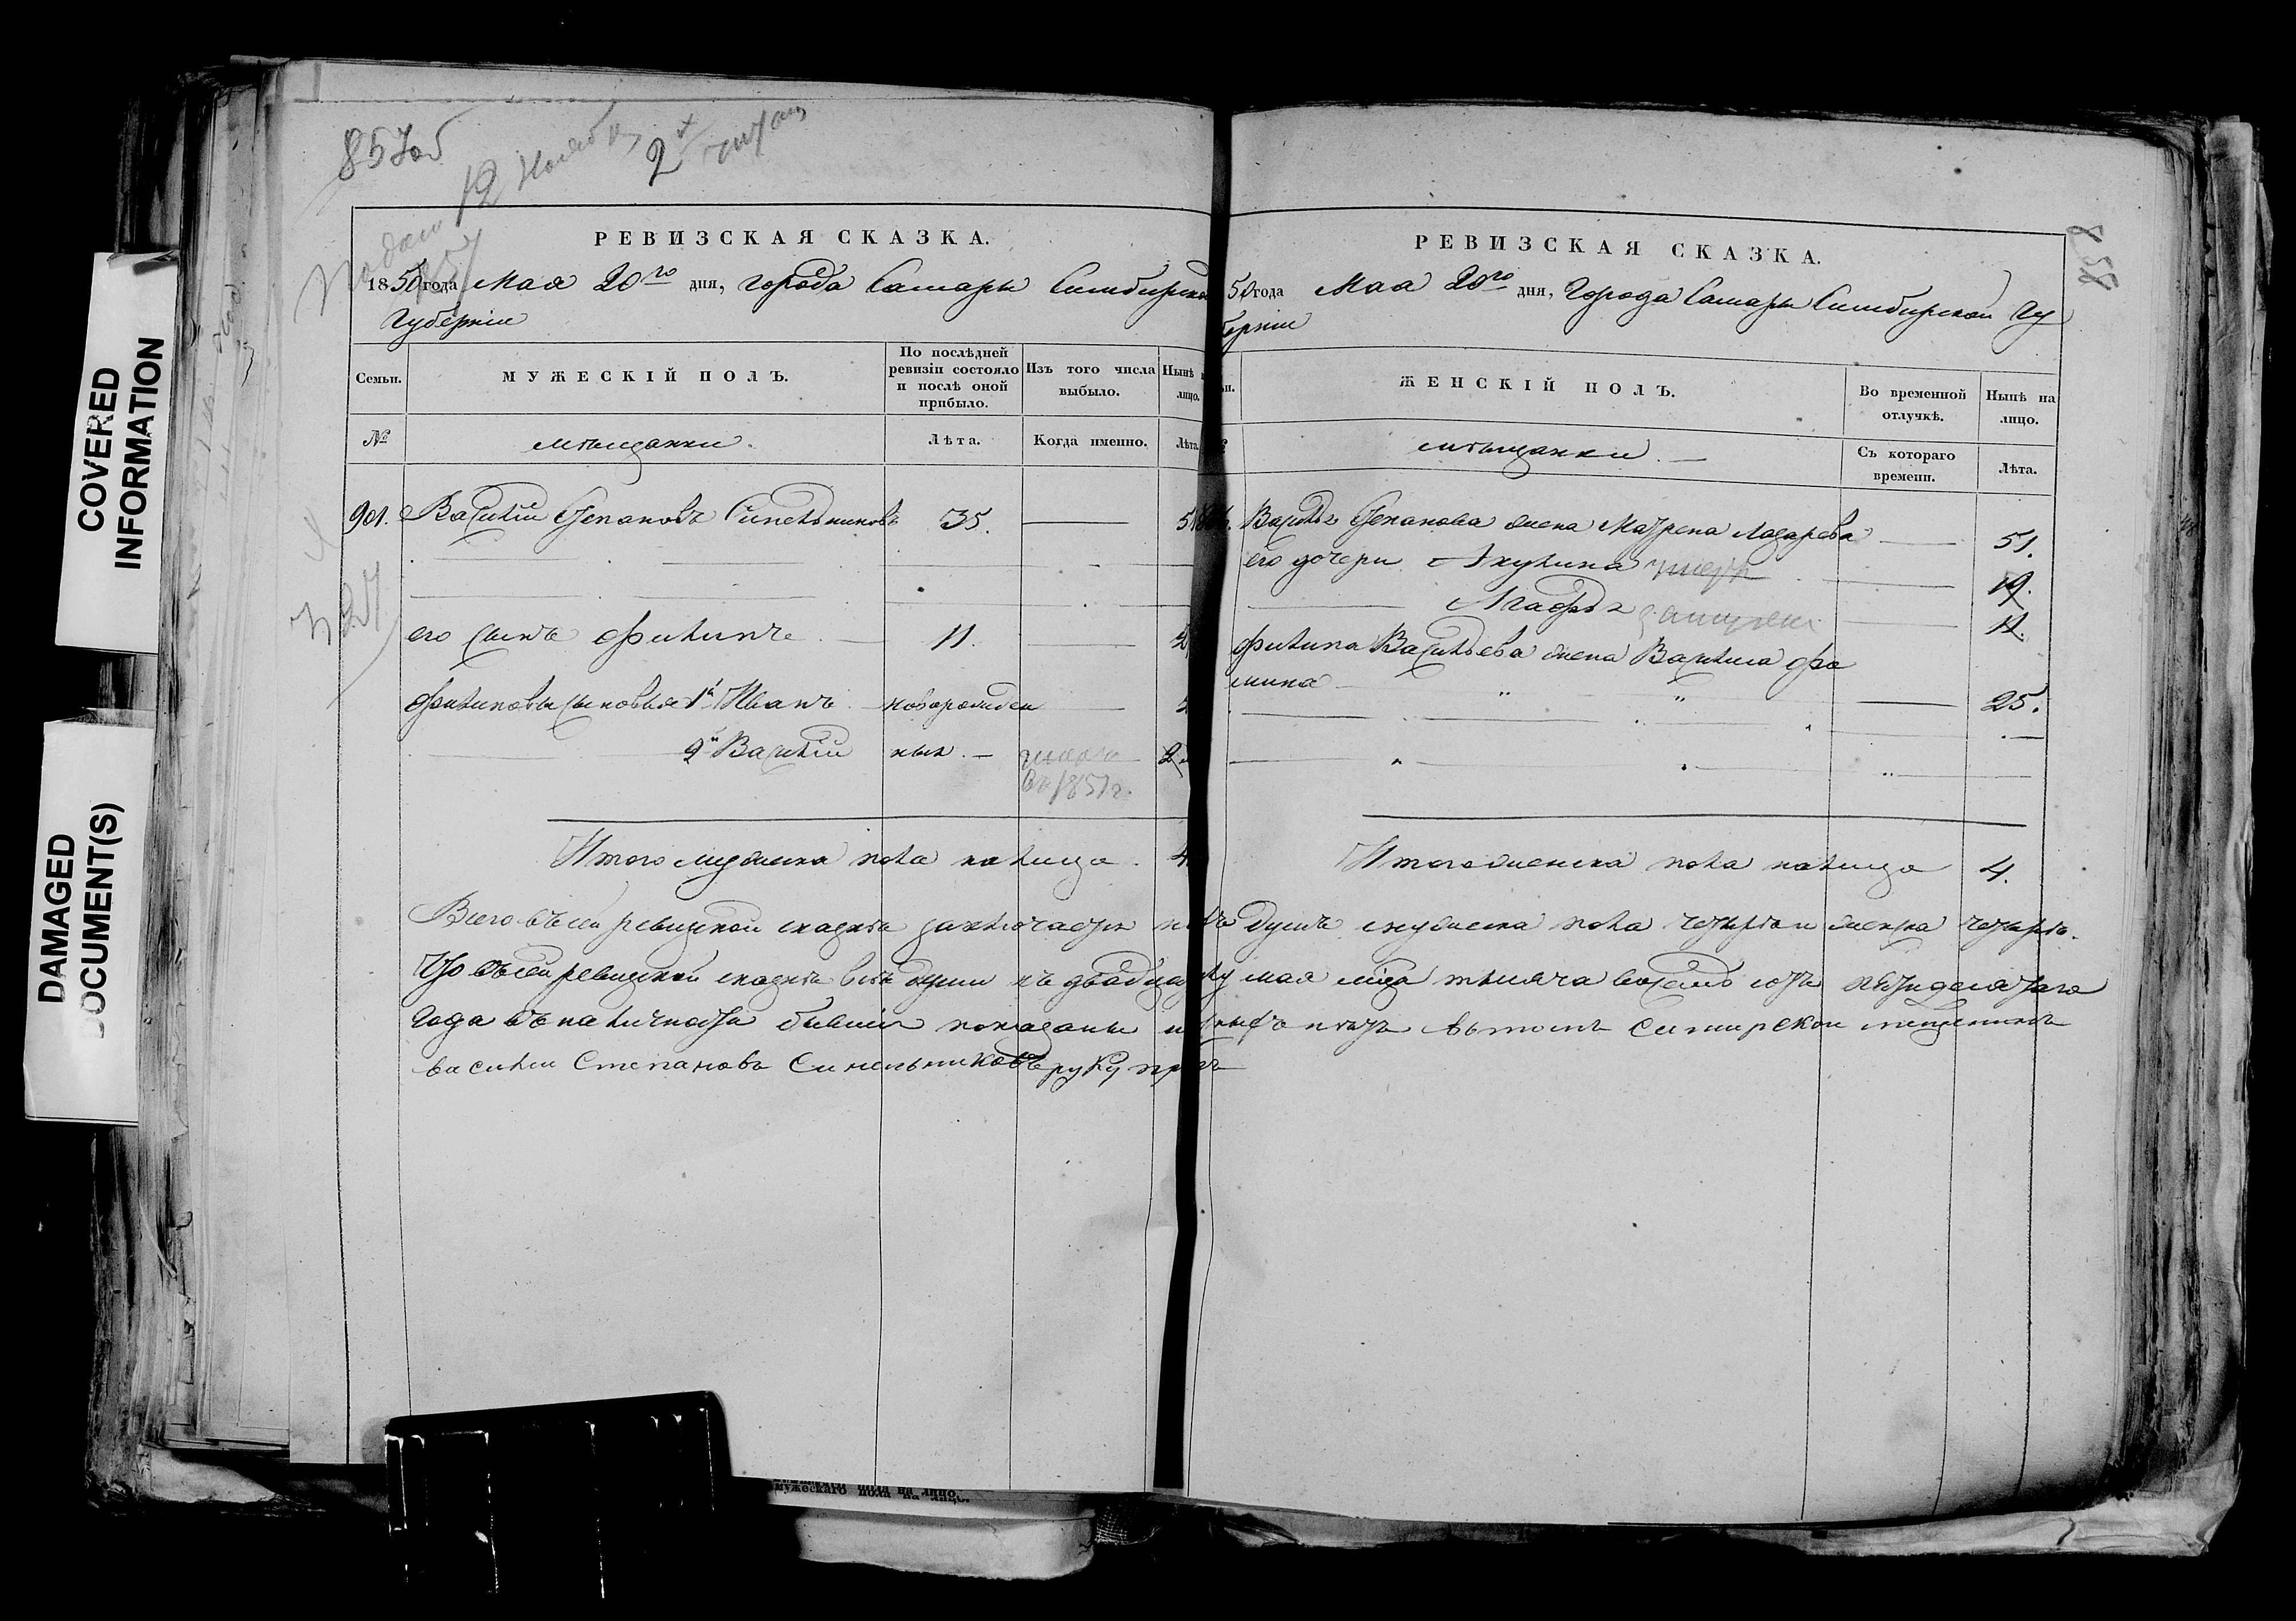 COVERED
INFORMATION
DAMAGED
DOCUMENT(S)
857об
12 Ноября
2
РЕВИЗСКАЯ СКАЗКА.
1850 года Мая 20го дня, Города Самары Симбирской
Губернiи
Семьи.
МУЖЕСКIЙ ПОЛЪ.
По послѣдней ревизiи состояло и послѣ оной прибыло.
Изъ того числа выбыло.
Нынѣ
лицо.
№
мѣщанки.
Лѣта.
Когда именно.
Лѣта.
901. Василiй Степановъ Синельниковъ 35. 51
его сынъ Филипъ 11.
Филиповы сыновья 1й Иванъ новорожден
2й Василiй ныя. умеръ 2
въ 1851 г.
Итого мужеска пола налицо 4
858
РЕВИЗСКАЯ СКАЗКА.
50 года Мая 20го дня, Города Самары Симбирской Гу
бернiи
ЖЕНСКIЙ ПОЛЪ.
Во временной отлучкѣ.
Нынѣ на лицо.
мѣщанки.
Съ котораго времени.
Лѣта.
Василья Степанова жена Матрена Лазарева 51.
его дочери Акулина 19.
Агафья замужем 11.
Филипа Васильева жена Василиса Фо
мина 25.
Итого женска пола налицо 4.
Всего въ сей ревизской сказкѣ заключается душъ мужеска пола четыре и женска четыре.
Что въ сей ревизской сказкѣ всѣ души къ двадцатому мая мѣсяца тысяча восемь сотъ пятидесятаго
года въ наличности бывшiя показаны и нѣтъ в томъ
василiи Степановъ Синельниковъ руку
мужескаго пола на лицо.